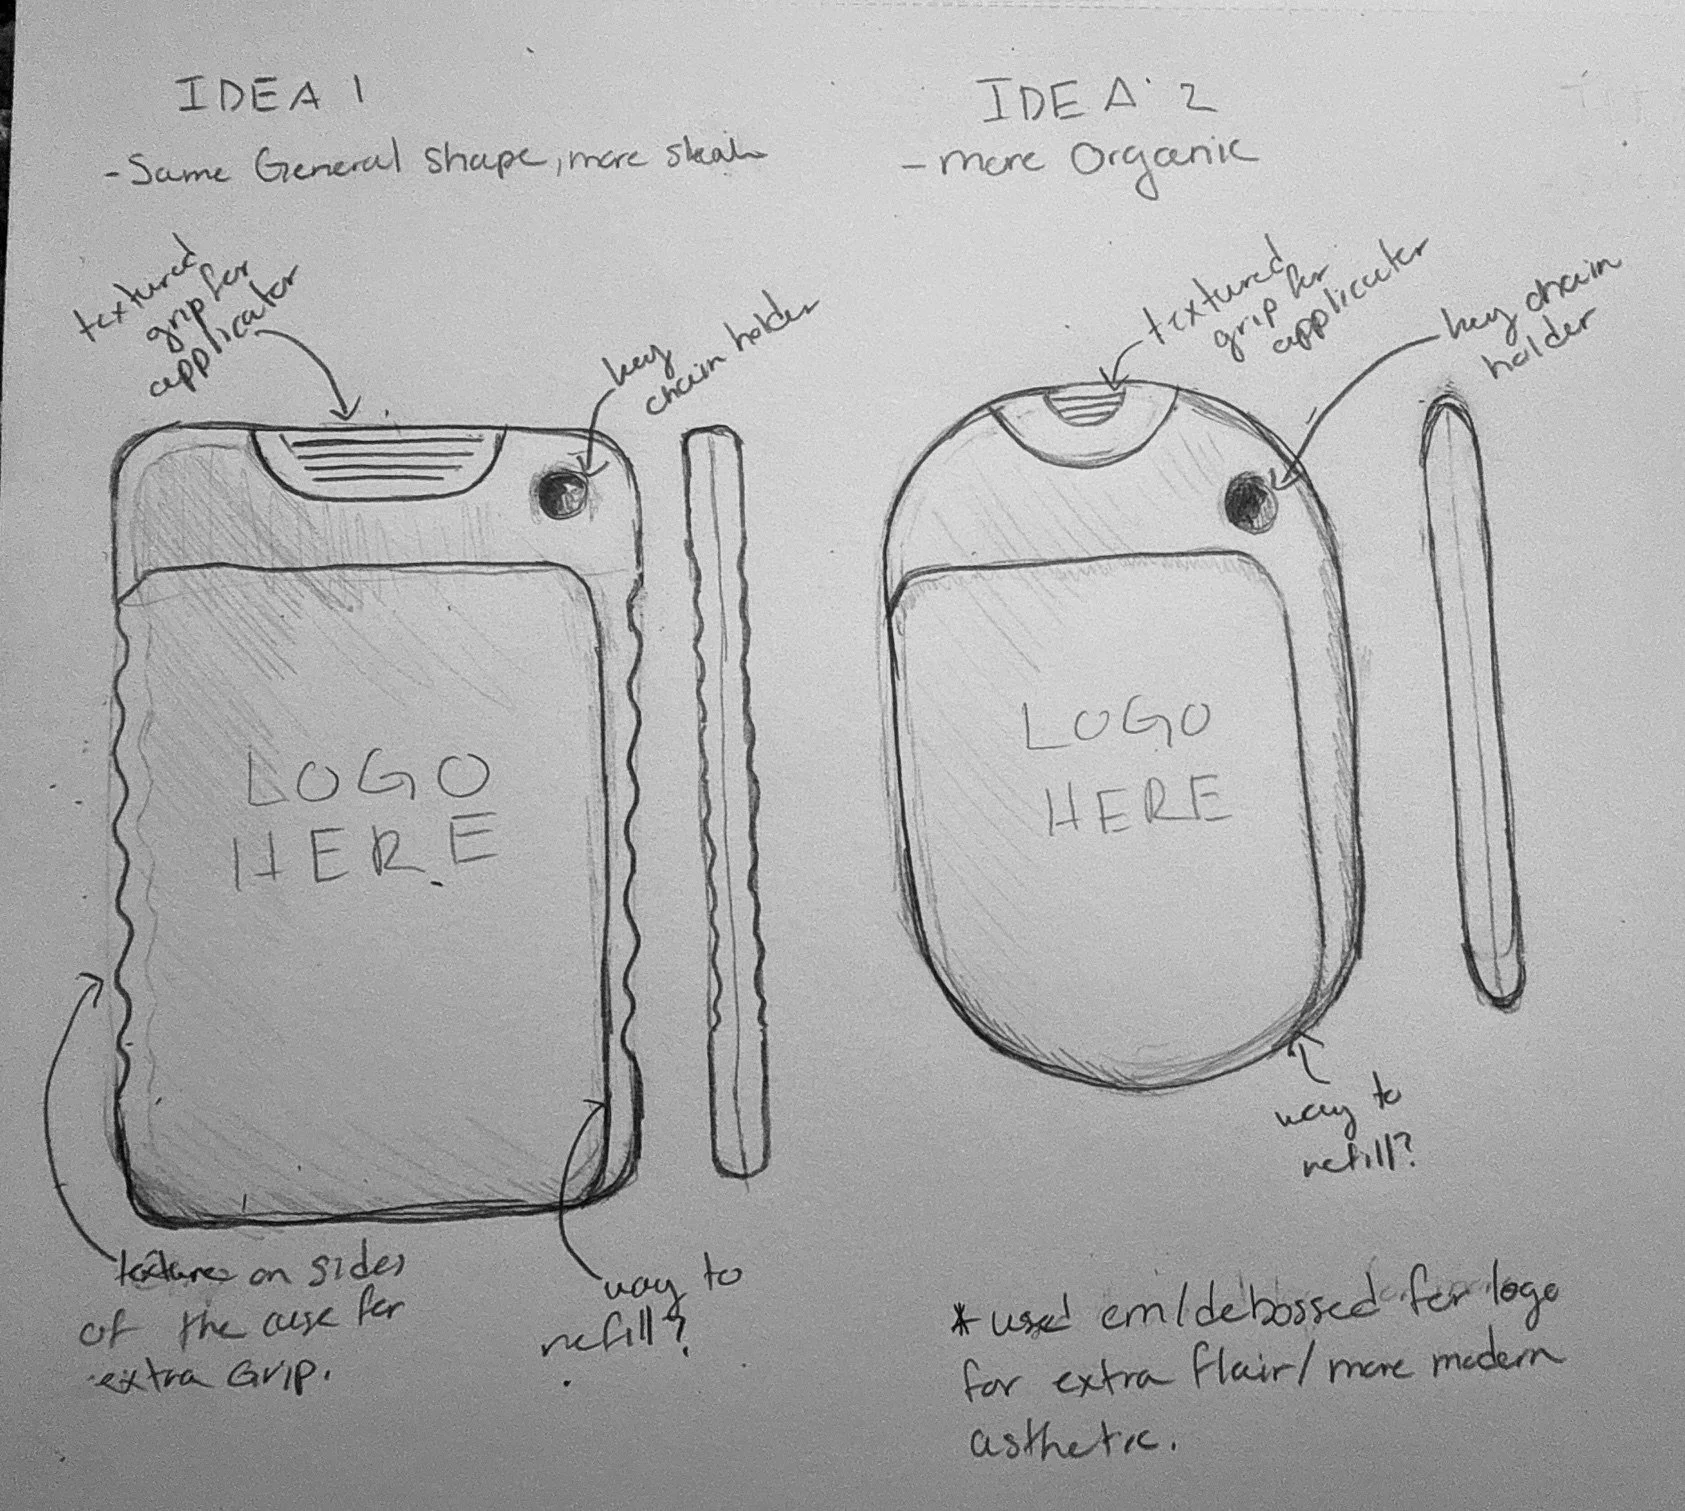 IDEA 1
- Same General shape, more sleak
textured
grip for
applicator
key
chain holder
LOGO
HERE
textures on sides
of the case for
extra Grip.
way to
refill?
IDEA 2
- more Organic
textured
grip for
applicator
key chain
holder
LOGO
HERE
way to
refill?
* used em/debossed for logo
for extra flair/more modern
asthetic.